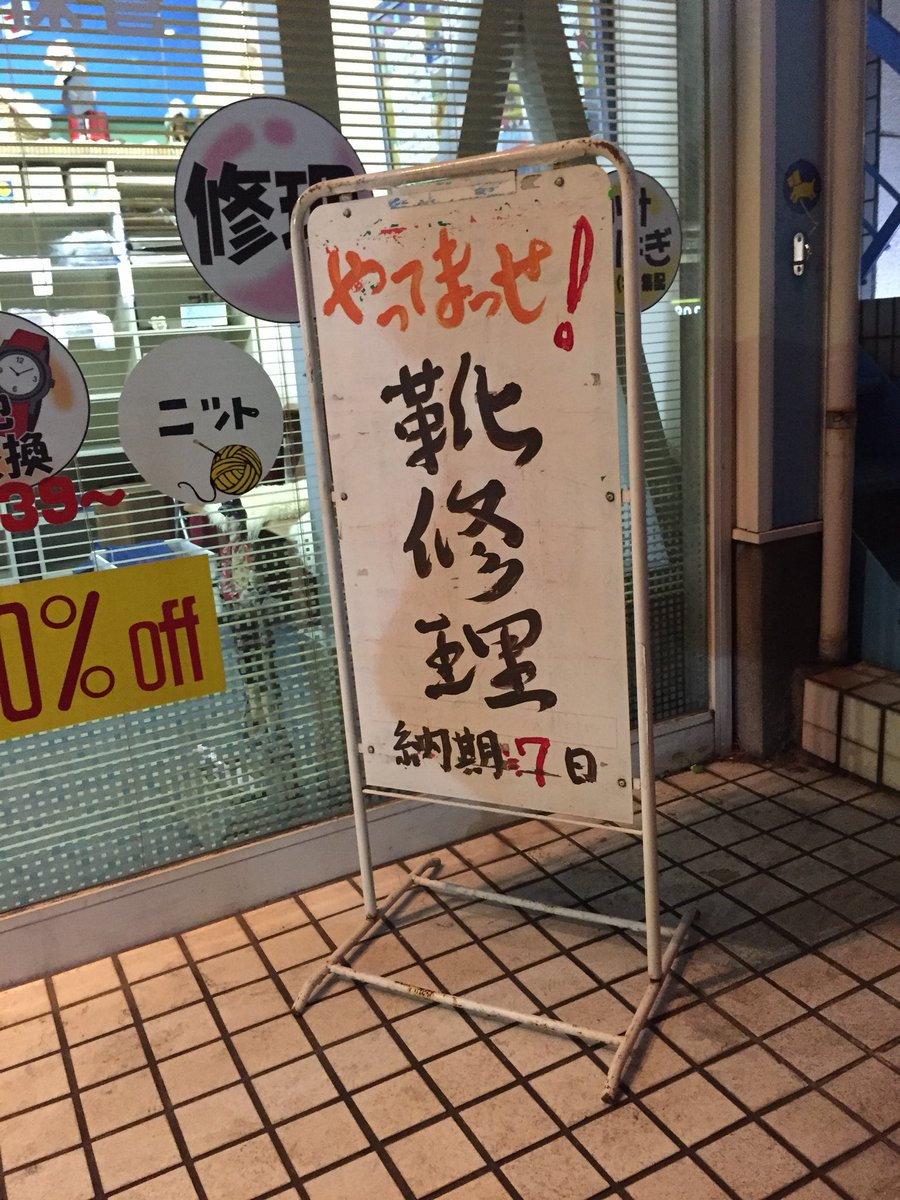 修理
やってまっせ!
靴修理
納期:7日
ニット
換
39~
0% off
ぎ
集配